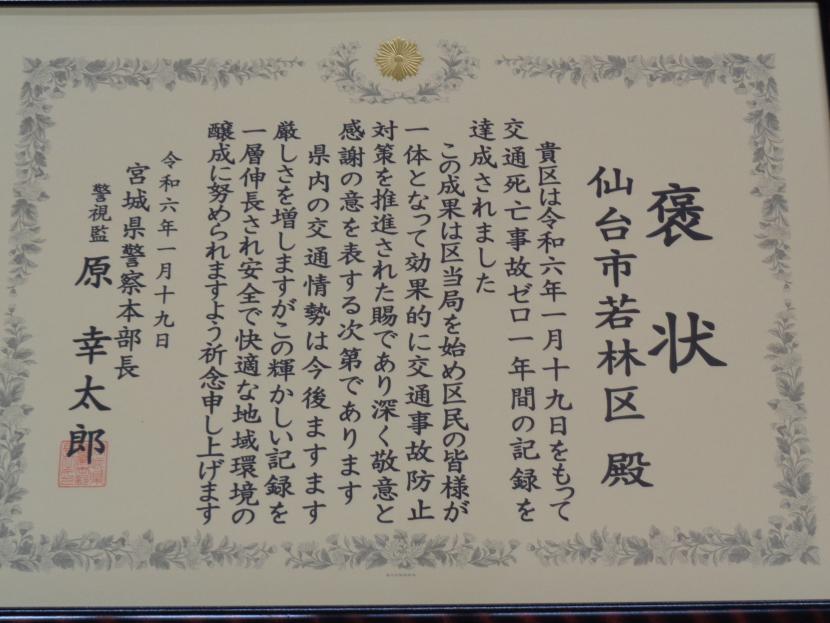 褒状
仙台市若林区 殿
貴区は令和六年一月十九日をもって
交通死亡事故ゼロ一年間の記録を
達成されました
この成果は区当局を始め区民の皆様が
一体となって効果的に交通事故防止
対策を推進された賜であり深く敬意と
感謝の意を表する次第であります
県内の交通情勢は今後ますます
厳しさを増しますがこの輝かしい記録を
一層伸長され安全で快適な地域環境の
醸成に努められますよう祈念申し上げます
令和六年一月十九日
宮城県警察本部長
警視監 原 幸太郎